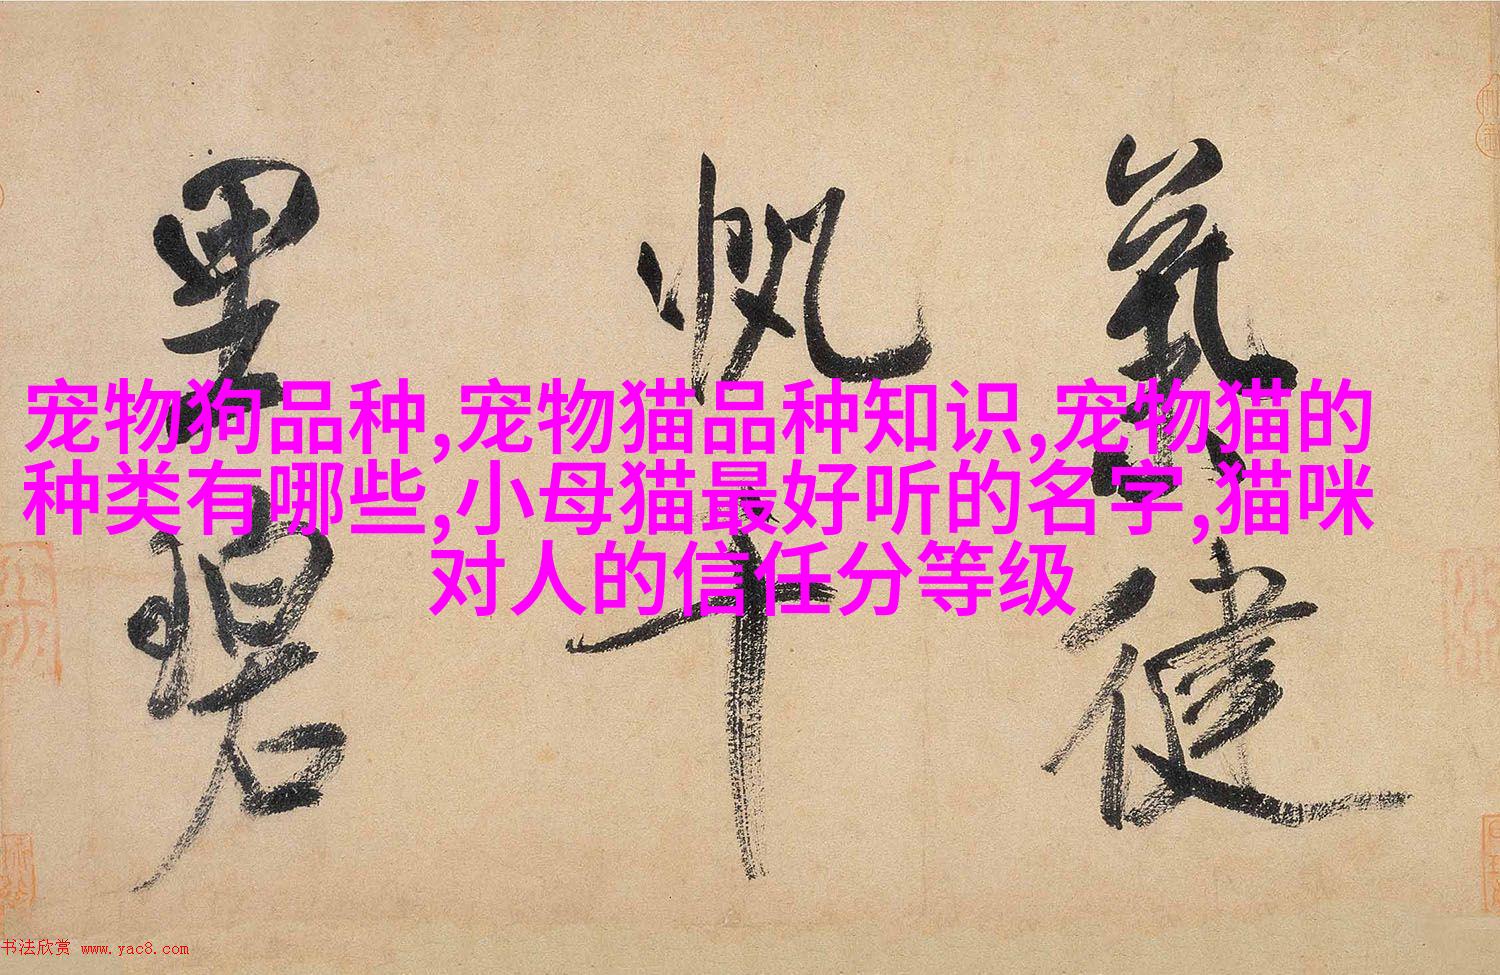 宠物狗品种,宠物猫品种知识,宠物猫的
种类有哪些,小母猫最好听的名字,猫咪
对人的信任分等级
气健
帆十
里碧
书法欣赏 www.yac8.com